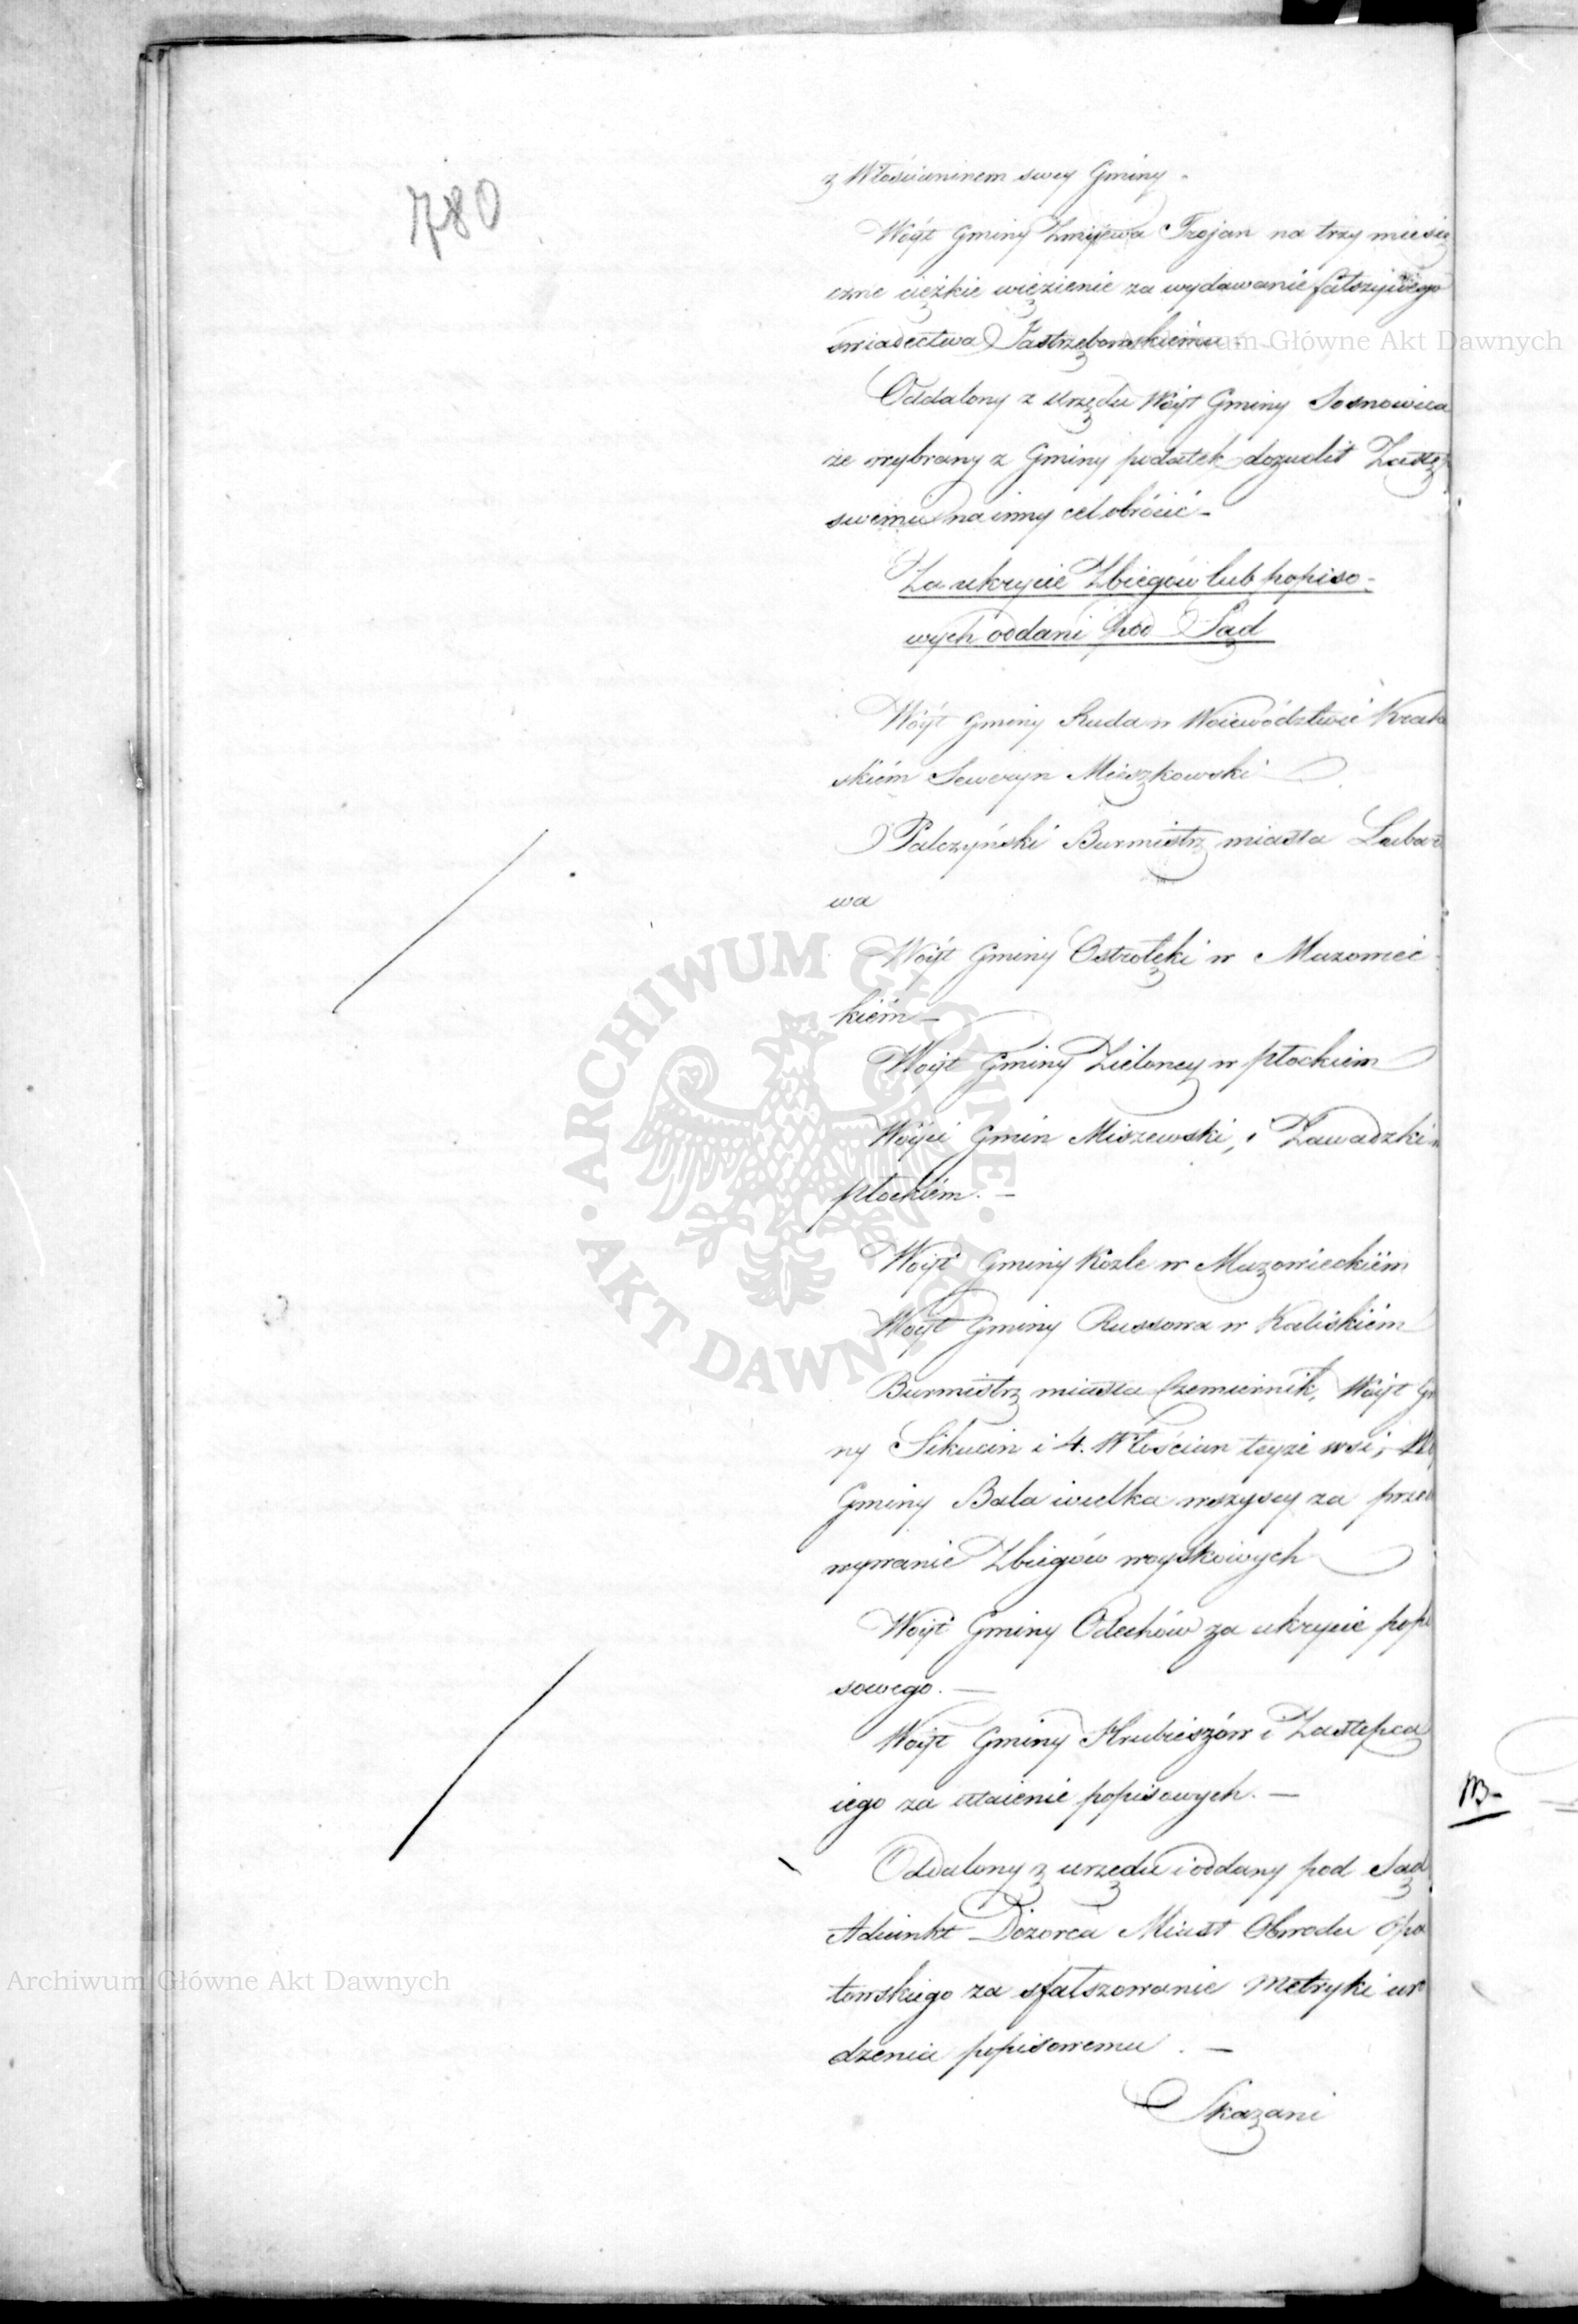 780
z Włościaninem swey Gminy -
Wóyt Gminy Żmijewa Trojan na trzy miesię
czne ciężkie więzienie za wydawanie fałszywego
świadectwa Jastrzębowskiemu -
Oddalony z Urzędu Wóyt Gminy Sosnowica
że wybrany z Gminy podatek dozwolił Zastę
swemu na inny cel obrócić -
Za ukrycie Zbiegów lub popiso-
wych oddani pod Sąd
Wóyt Gminy Ruda w Woiewództwie Krako
skiém Seweryn Mieszkowski
Palczyński Burmistrz miasta Lubar
wa
Wóyt Gminy Ostrołęki w Mazowiec
kiém -
Wóyt Gminy Zieloney w Płockiem
Wóyci Gmin Miszewski, i Zawadzki w
płockiém. -
Wóyt Gminy Kozle w Mazowieckiém
Wóyt Gminy Russowa w Kaliskiém
Burmistrz miasta Czemiernik, Wóyt Gmi
ny Sikucin i 4. Włościan teyże wsi,
Gminy Bala wielka wszyscy za przech
wywanie Zbiegów woyskowych
Wóyt Gminy Odechów za ukrycie popi
sowego. -
Wóyt Gminy Hrubieszów i Zastępca
iego za utaienie popisowych. -
Oddalony z urzędu i oddany pod Sąd
Adiunkt Dozorca Miast Obwodu Opa
towskiego za sfałszowanie Metryki uro
dzenia popisowemu. -
Skazani
NB-
Archiwum Główne Akt Dawnych
ARCHIWUM GŁÓWNE
AKT DAWNYCH
Archiwum Główne Akt Dawnych